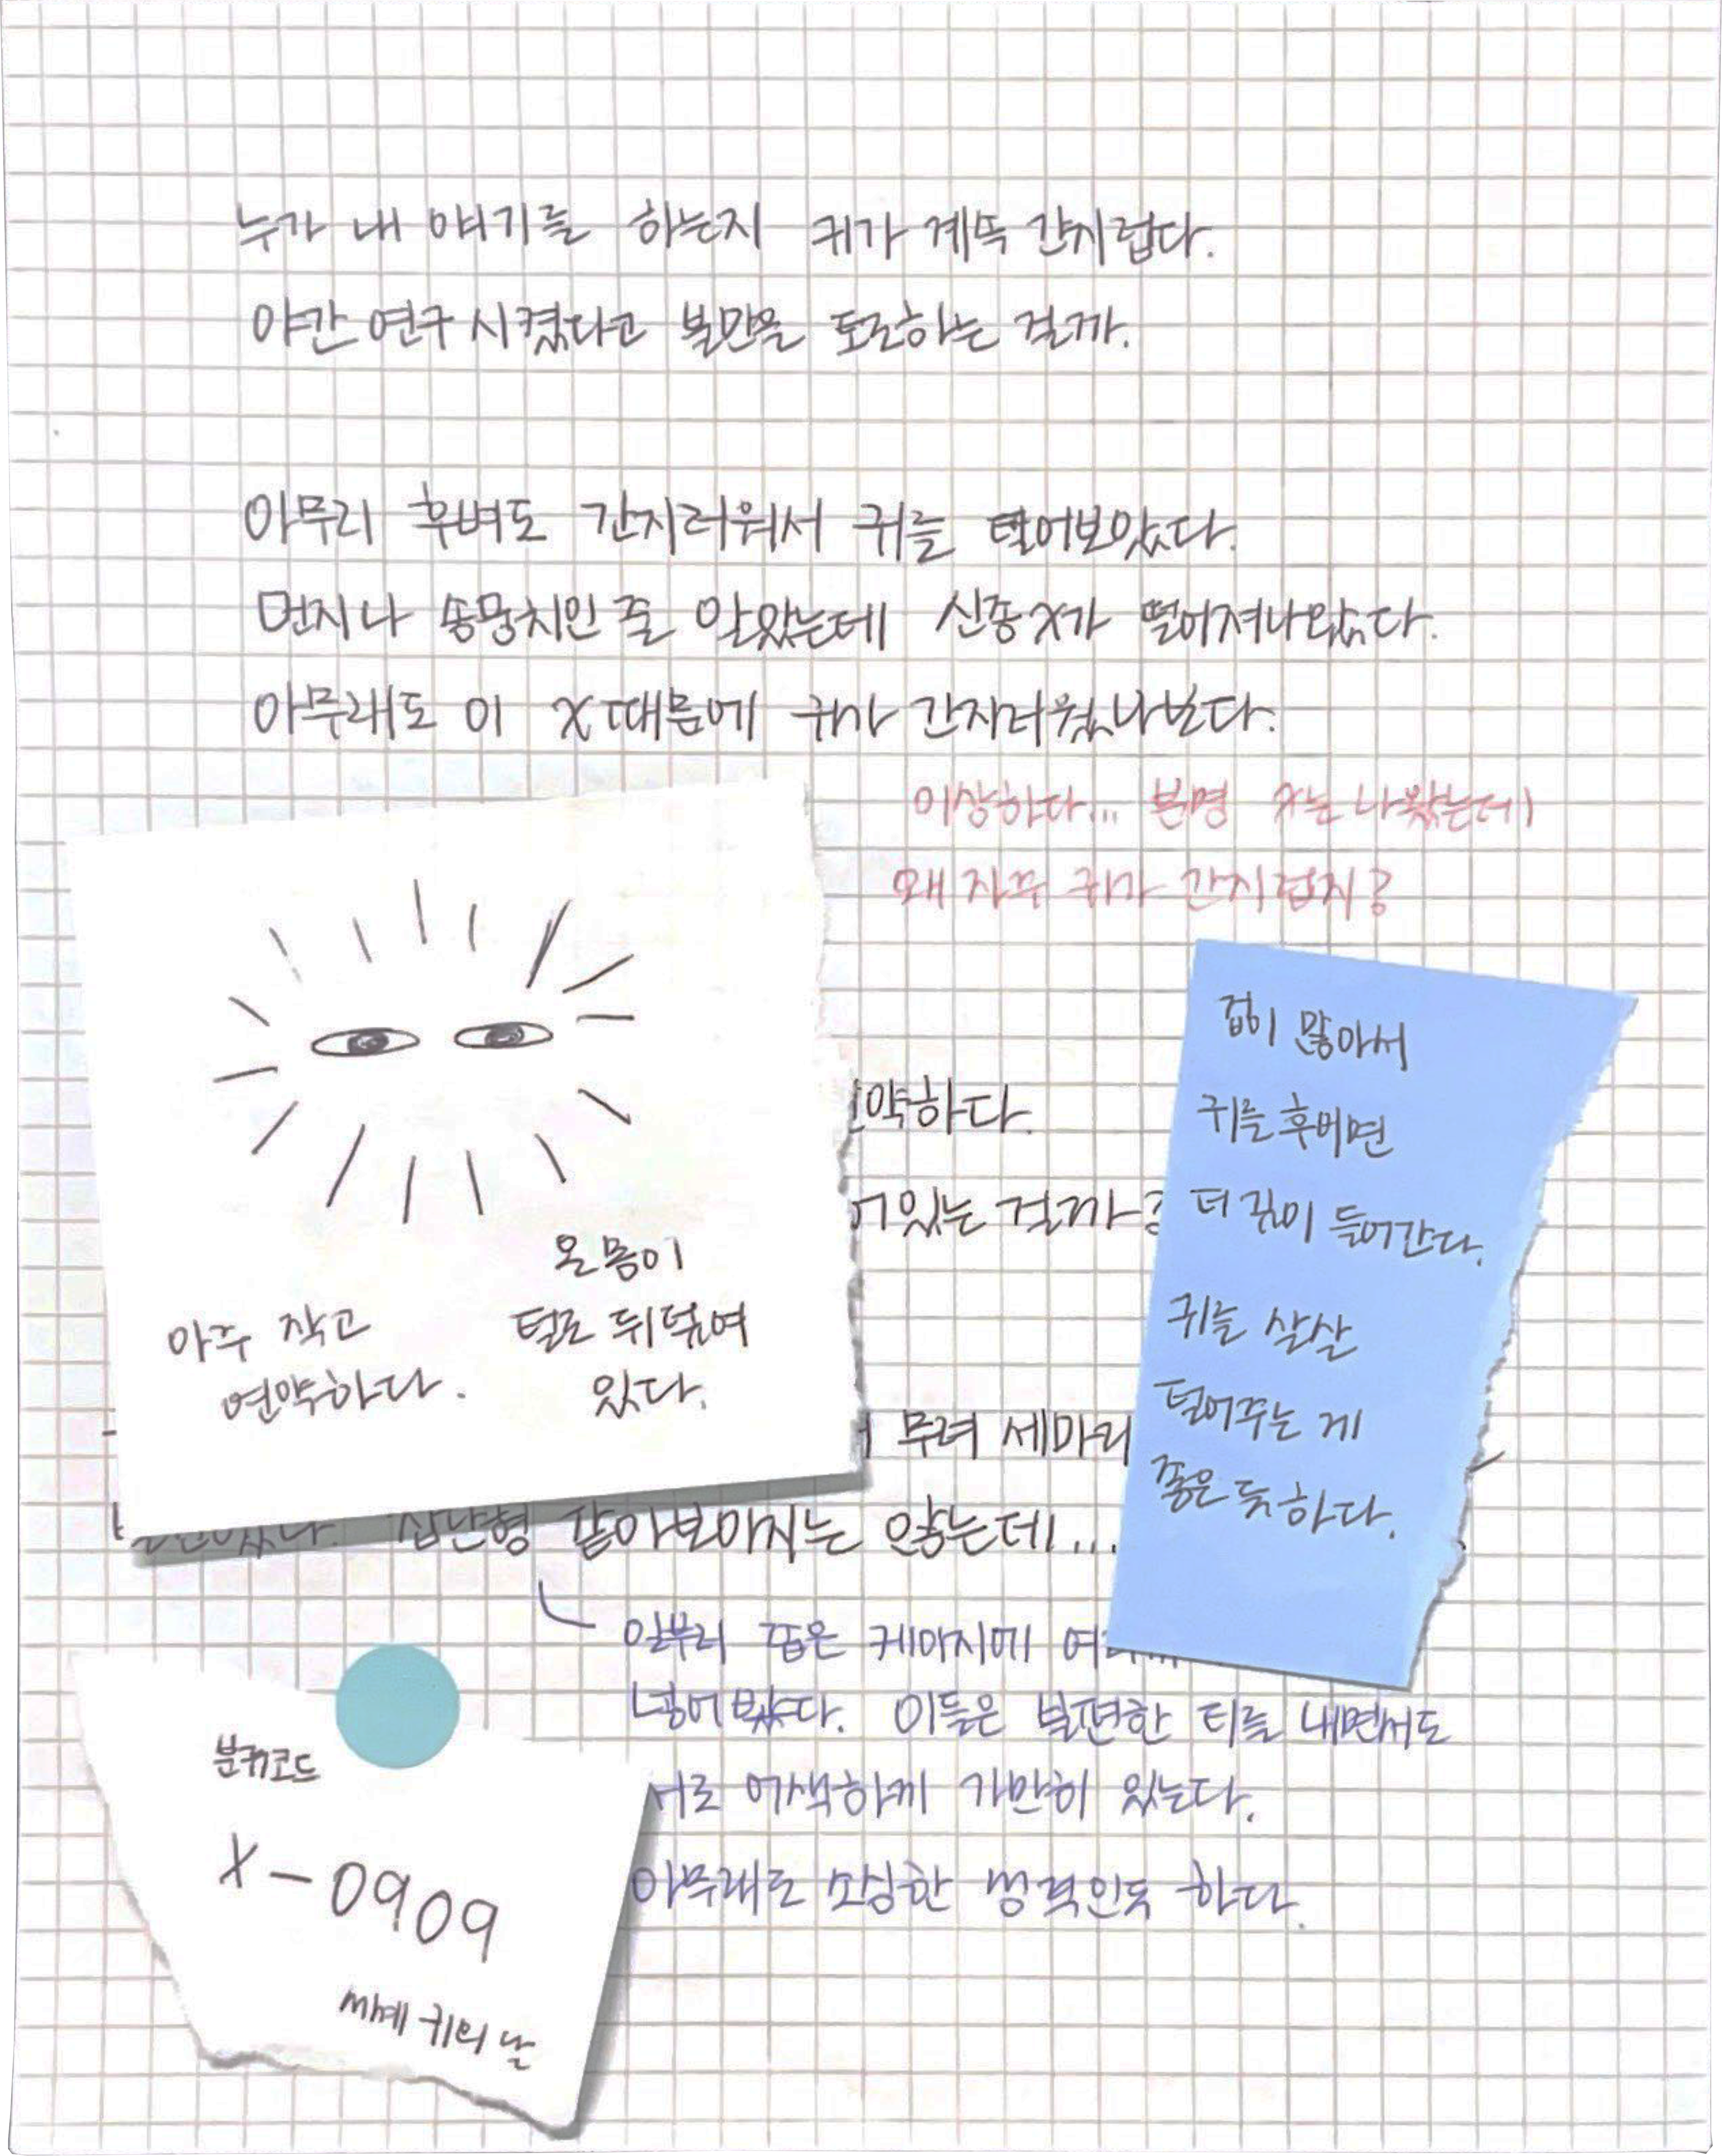 누가 내 얘기를 하는지 귀가 계속 간지럽다.
야간 연구 시켰다고 불만을 토로하는 걸까.
아무리 후벼도 간지러워서 귀를 털어보았다.
먼지나 솜뭉치인 줄 알았는데 신종 X가 떨어져나왔다.
아무래도 이 X 때문에 귀가 간지러웠나보다.
이상하다... 분명 X는 나왔는데
왜 자꾸 귀가 간지럽지?
온몸이
아주 작고 털로 뒤덮여
연약하다. 있다.
약하다.
있는 걸까?
무려 세마리
집단형 같아보이지는 않는데...
겁이 많아서
귀를 후비면
더 깊이 들어간다.
귀를 살살
털어주는 게
좋은 듯 하다.
일부러 좁은 케이지에
넣어봤다. 이들은 불편한 티를 내면서도
서로 어색하게 가만히 있는다.
아무래도 소심한 성격인듯 하다.
분류코드
X-0909
세계 귀의 날